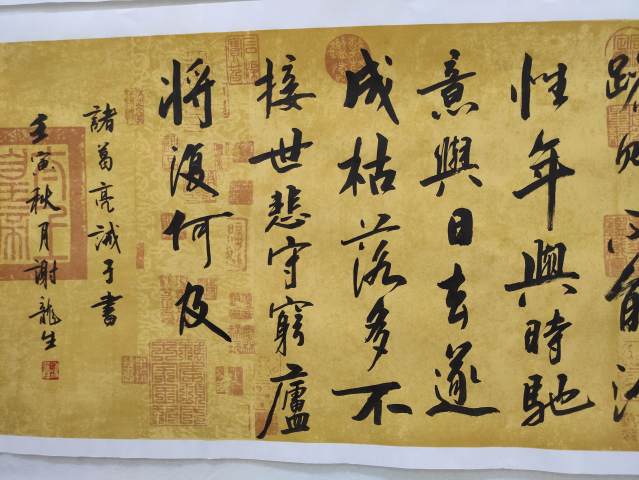 躁則不能
性年與時馳
意與日去遂
成枯落多不
接世悲守窮廬
將復何及
諸葛亮誡子書
壬寅秋月謝龍生